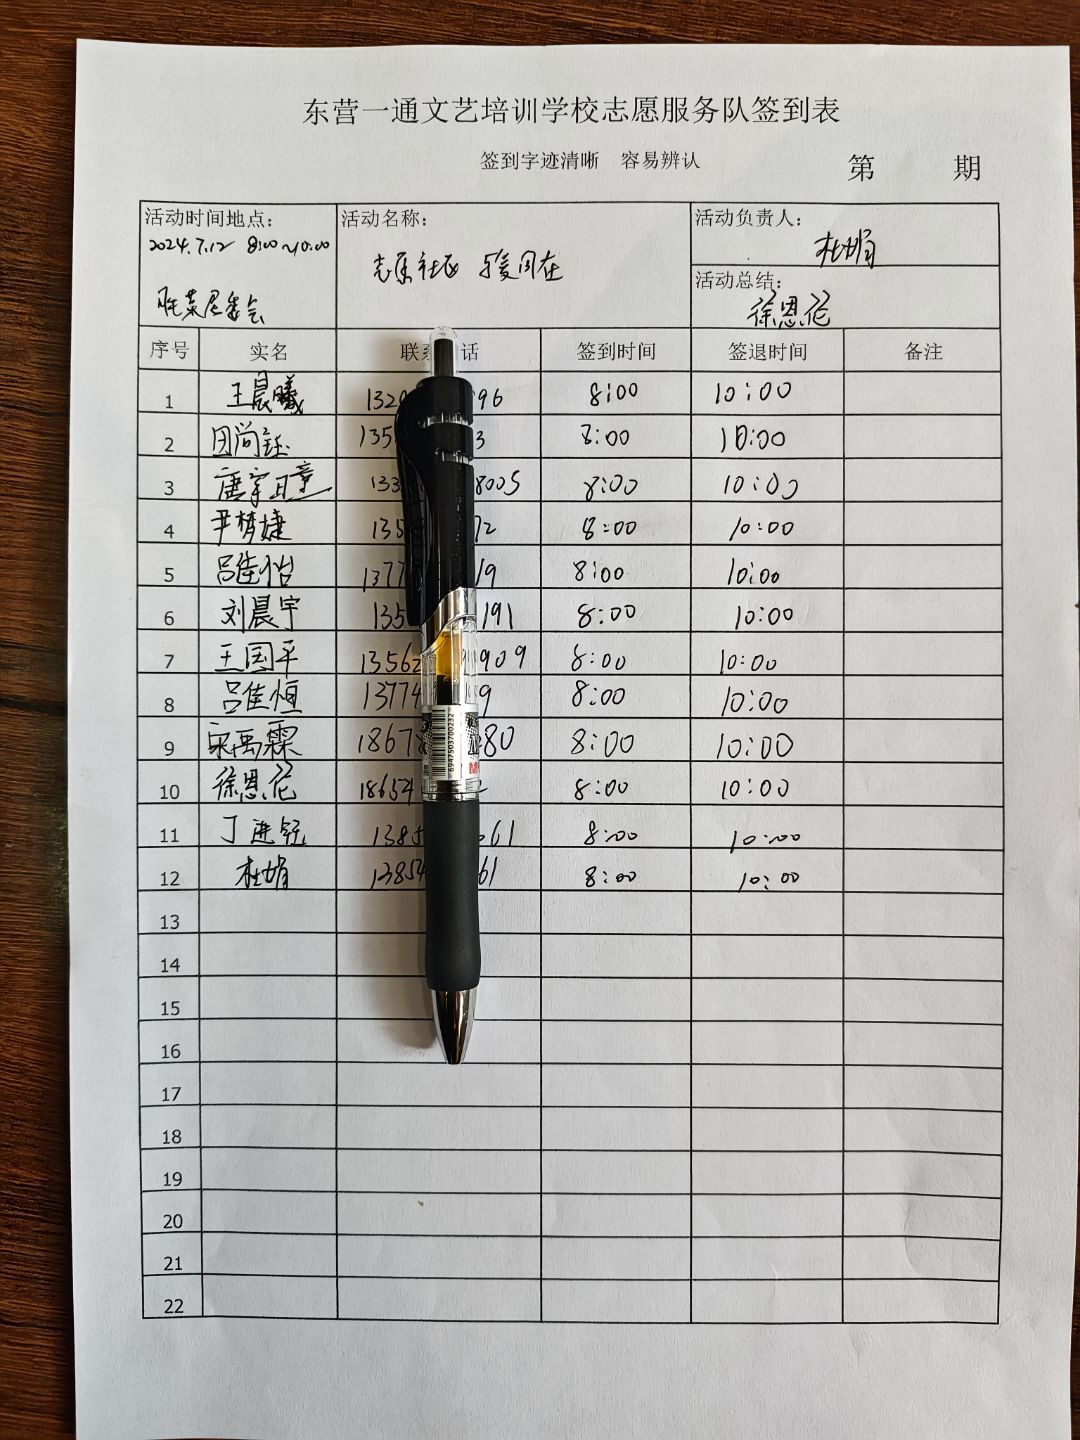 东营一通文艺培训学校志愿服务队签到表
签到字迹清晰 容易辨认
第 期
活动时间地点: 活动名称: 活动负责人:
2024.7.12 8:00~10:00 杜娟
志愿社区 与爱同在
活动总结:
居委会 徐恩伦
序号 实名 联系 话 签到时间 签退时间 备注
1 王晨曦 132 96 8:00 10:00
2 尚钰 135 3 8:00 10:00
3 唐宇 133 8005 8:00 10:00
4 尹梦婕 135 72 8:00 10:00
5 吕佳怡 1377 19 8:00 10:00
6 刘晨宇 135 191 8:00 10:00
7 王国平 13562 909 8:00 10:00
8 吕佳恒 13774 9 8:00 10:00
9 宋禹霖 18678 80 8:00 10:00
10 徐恩伦 18654 2 8:00 10:00
11 丁进钰 1385 61 8:00 10:00
12 杜娟 13854 61 8:00 10:00
13
14
15
16
17
18
19
20
21
22
6947503700232